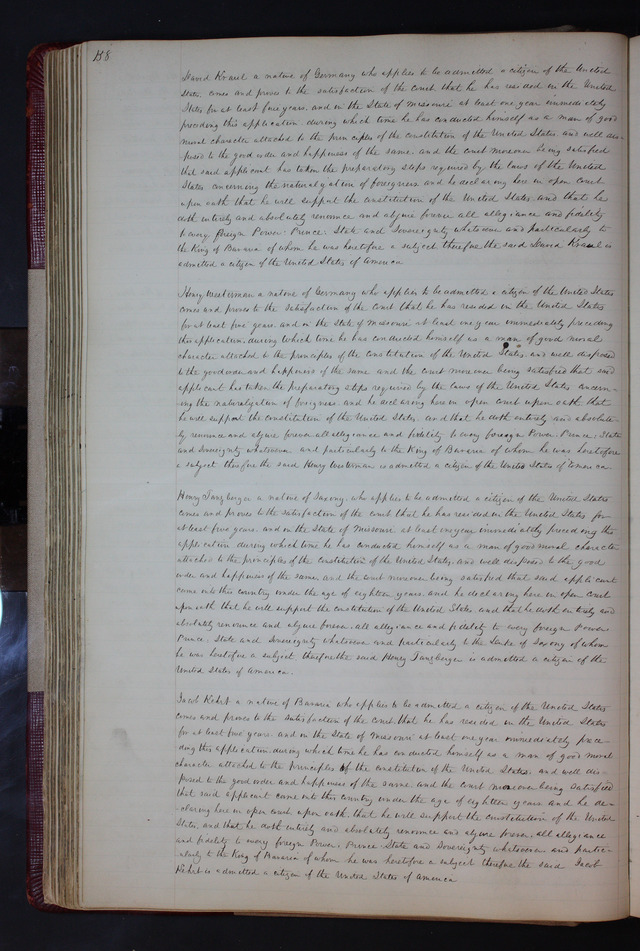 158
David Kraul a native of Germany who applies to be admitted a citizen of the United
States, comes and proves to the satisfaction of the court that he has resided in the United
States for at least five years, and in the State of Missouri at least one year immediately
preceding this application, during which time he has conducted himself as a man of good
moral character attached to the principles of the constitution of the United States, and well dis-
posed to the good order and happiness of the same, and the court moreover being satisfied
that said applicant has taken the preparatory steps required by the laws of the United
States concerning the naturalization of foreigners and he declaring here in open court
upon oath that he will support the constitution of the United States, and that he
doth entirely and absolutely renounce and abjure forever all allegiance and fidelity
to every foreign Power, Prince, State and Sovereignty whatsoever and particularly to
the King of Bavaria of whom he was heretofore a subject therefore the said David Kraul is
admitted a citizen of the United States of America
Henry Westerman a native of Germany who applies to be admitted a citizen of the United States
comes and proves to the satisfaction of the court that he has resided in the United States
for at least five years, and in the State of Missouri at least one year immediately preceding
this application, during which time he has conducted himself as a man of good moral
character attached to the principles of the constitution of the United States, and well disposed
to the good order and happiness of the same and the court moreover being satisfied that said
applicant has taken the preparatory steps required by the laws of the United States concern-
ing the naturalization of foreigners and he declaring here in open court upon oath that
he will support the constitution of the United States, and that he doth entirely and absolute-
ly renounce and abjure forever all allegiance and fidelity to every foreign Power, Prince, State
and Sovereignty whatsoever and particularly to the King of Bavaria of whom he was heretofore
a subject therefore the said Henry Westerman is admitted a citizen of the United States of America
Henry Tanzberger a native of Saxony, who applies to be admitted a citizen of the United States
comes and proves to the satisfaction of the court that he has resided in the United States for
at least five years, and in the State of Missouri at least one year immediately preceding this
application during which time he has conducted himself as a man of good moral character
attached to the principles of the constitution of the United States, and well disposed to the good
order and happiness of the same, and the court moreover being satisfied that said applicant
came into this country under the age of eighteen years, and he declaring here in open court
upon oath that he will support the constitution of the United States and that he doth entirely and
absolutely renounce and abjure forever, all allegiance and fidelity to every foreign Power
Prince, State and Sovereignty whatsoever, and particularly to the Duke of Saxony of whom
he was heretofore a subject, therefore the said Henry Tanzberger is admitted a citizen of the
United States of America.
Jacob Kehrt a native of Bavaria who applies to be admitted a citizen of the United States
comes and proves to the satisfaction of the court that he has resided in the United States
for at least five years and in the State of Missouri at least one year immediately prece-
ding this application, during which time he has conducted himself as a man of good moral
character attached to the principles of the constitution of the United States, and well dis-
posed to the good order and happiness of the same and the court moreover being satisfied
that said applicant came into this country under the age of eighteen years and he de-
claring here in open court upon oath, that he will support the constitution of the United
States, and that he doth entirely and absolutely renounce and abjure forever, all allegiance
and fidelity to every foreign Power, Prince State and Sovereignty whatsoever and partic-
ularly to the King of Bavaria of whom he was heretofore a subject therefore the said Jacob
Kehrt is admitted a citizen of the United States of America